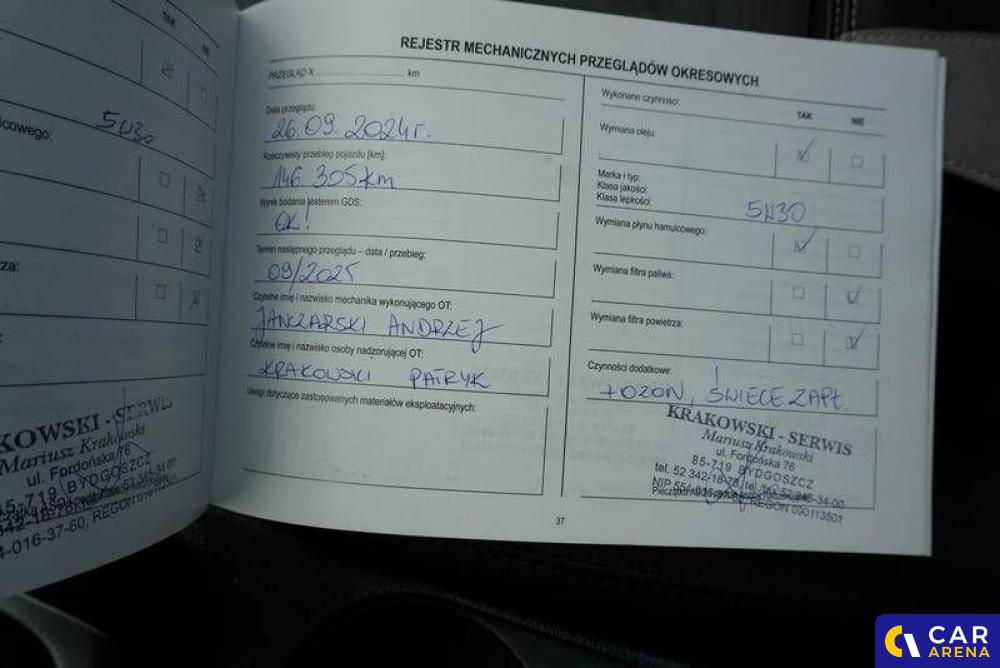 5W30
lcowego:
za:
KOWSKI - SERWIS
Mariusz Krakowski
ul. Fordońska 76
85-719 BYDGOSZCZ
REJESTR MECHANICZNYCH PRZEGLĄDÓW OKRESOWYCH
PRZEGLĄD X ........................ km
Data przeglądu:
26.09.2024r.
Rzeczywisty przebieg pojazdu [km]:
146 305 km
Wynik badania testerem GDS:
OK!
Termin następnego przeglądu – data / przebieg:
09/2025
Czytelne imię i nazwisko mechanika wykonującego OT:
JANCZARSKI ANDRZEJ
Czytelne imię i nazwisko osoby nadzorującej OT:
KRAKOWSKI PATRYK
Uwagi dotyczące zastosowanych materiałów eksploatacyjnych:
Wykonane czynności:
TAK NIE
Wymiana oleju:
Marka i typ:
Klasa jakości:
Klasa lepkości:
5W30
Wymiana płynu hamulcowego:
Wymiana filtra paliwa:
Wymiana filtra powietrza:
Czynności dodatkowe:
+OZON, ŚWIECE ZAPŁ.
KRAKOWSKI - SERWIS
Mariusz Krakowski
ul. Fordońska 76
85-719 BYDGOSZCZ
REGON 090113501
37
CAR
ARENA